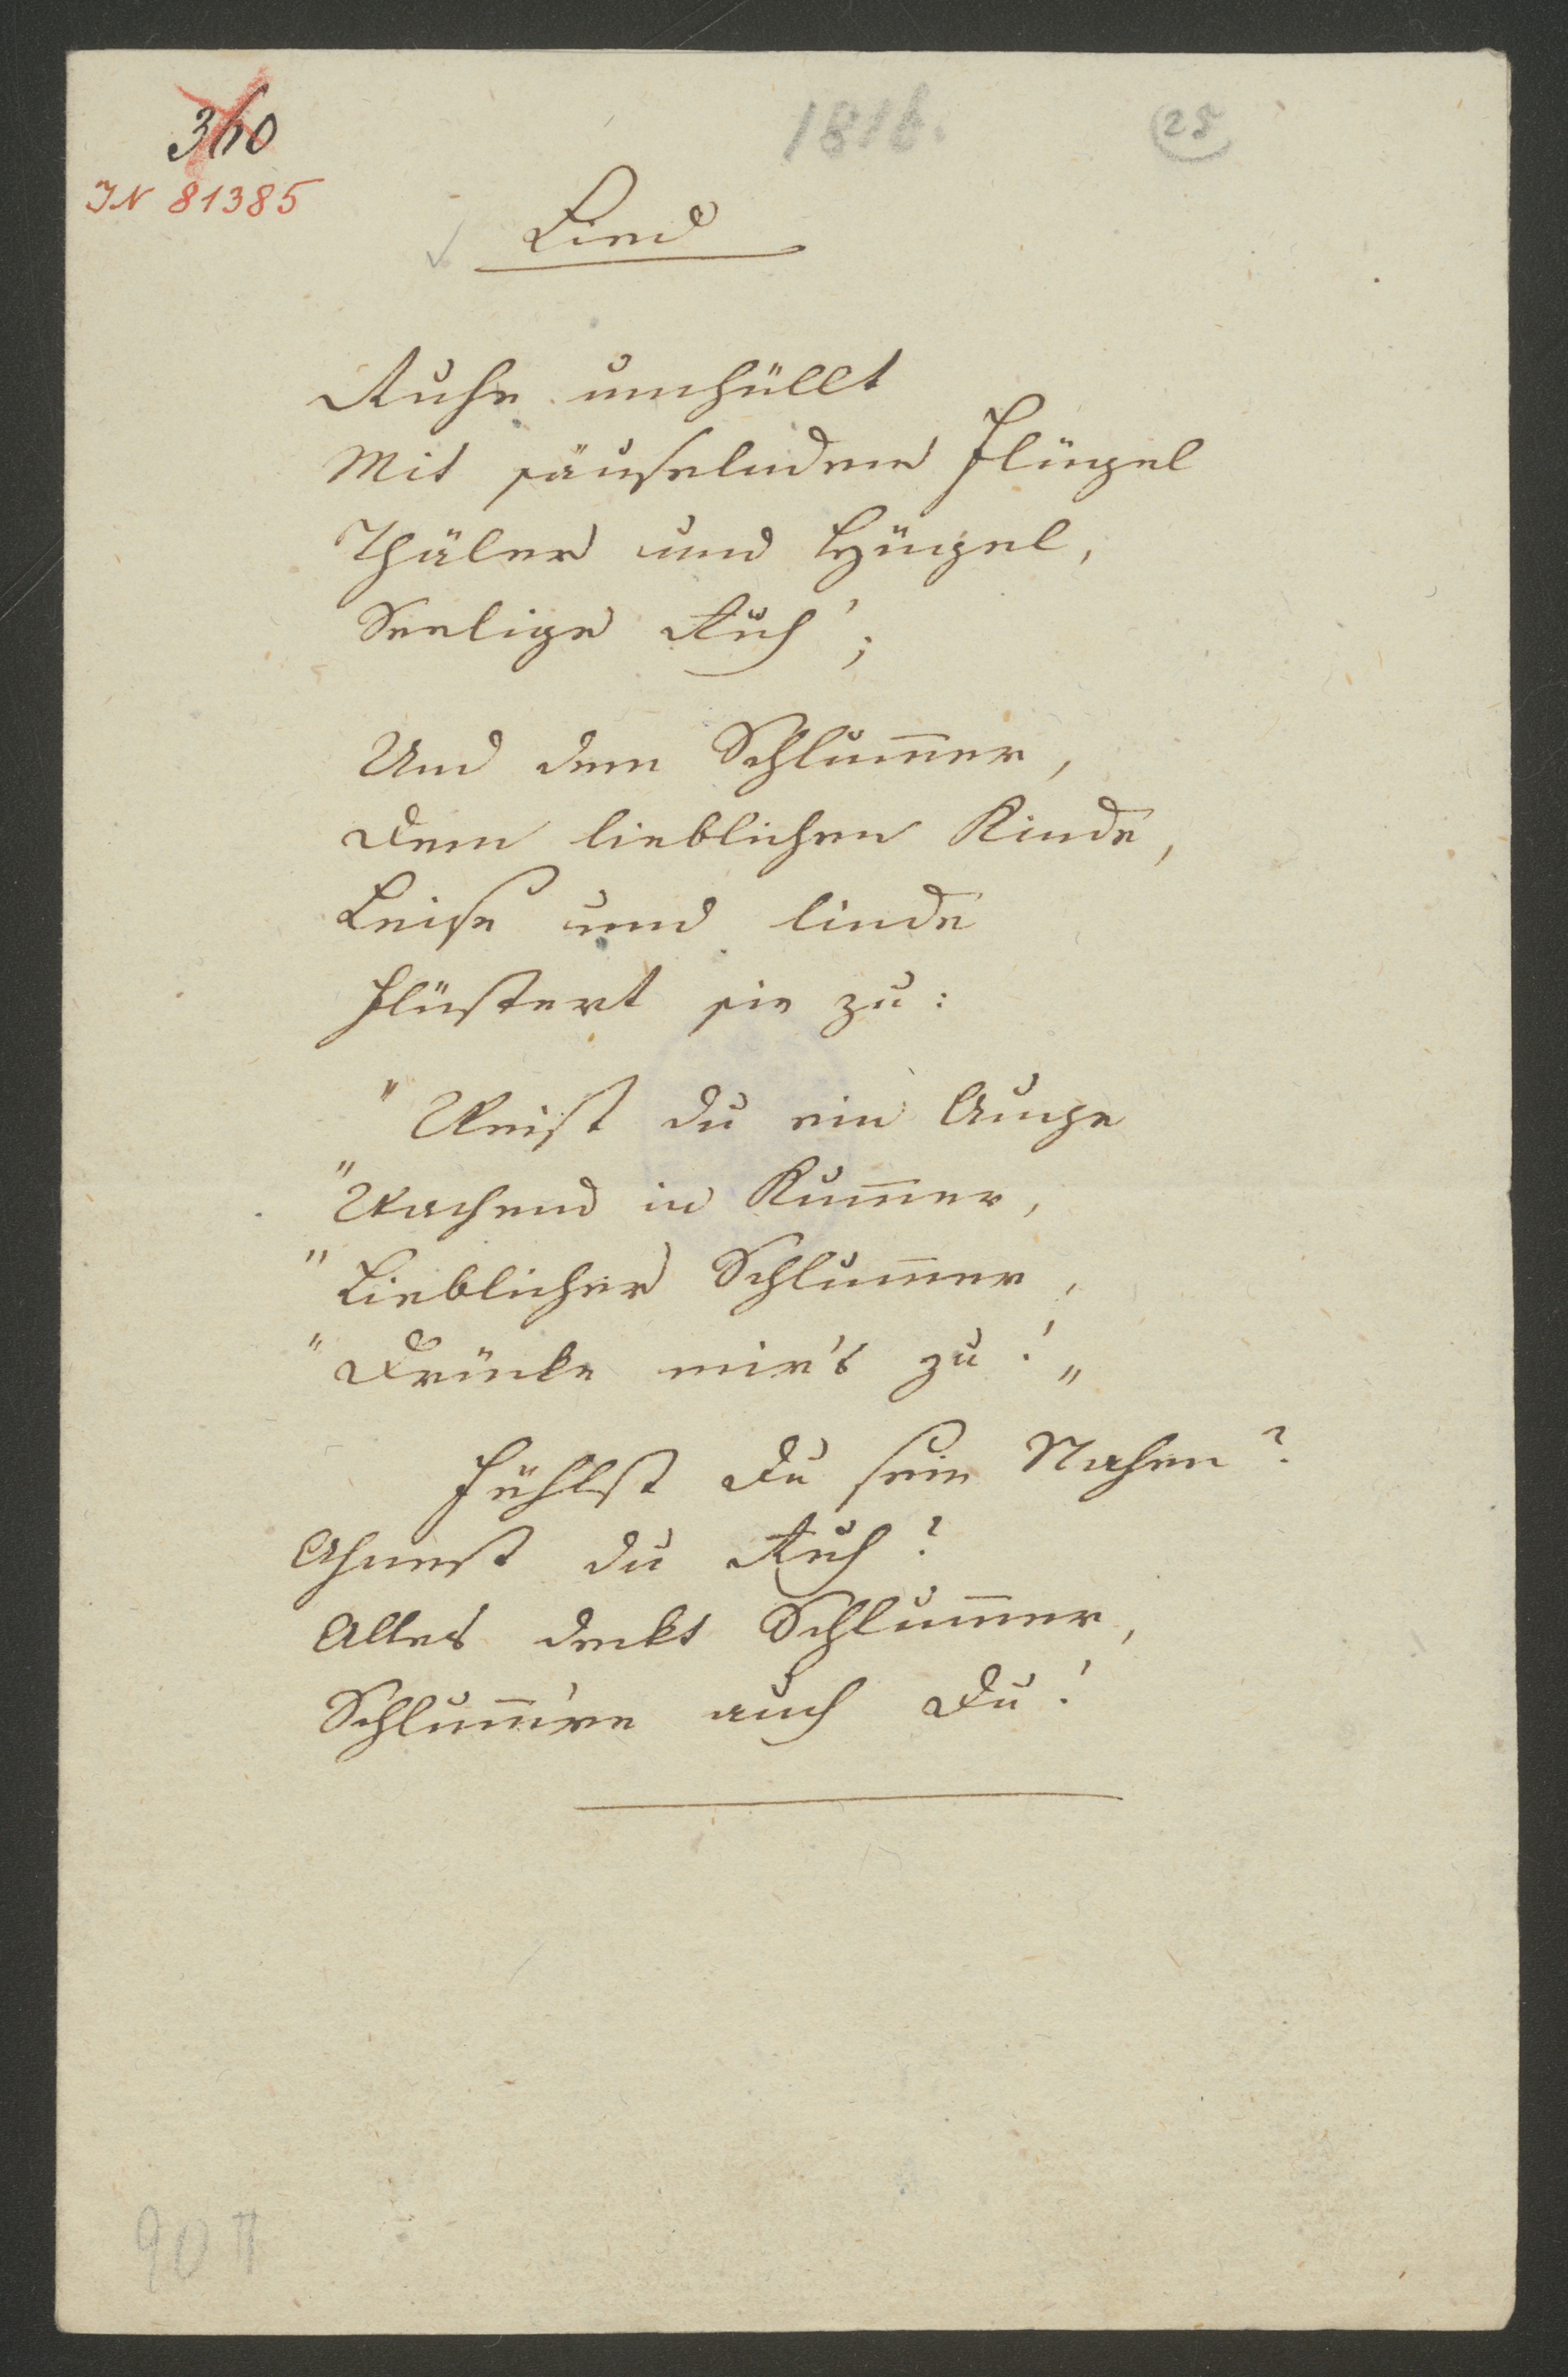 360
1816.
25
IN 81385
Lied
Ruhe umhüllt
Mit säuselndem Flügel
Thäler und Hügel,
Seelige Ruh';
Und dem Schlum̅er,
Dem lieblichen Kinde,
Leise und linde
Flüstert sie zu:
"Weißt du ein Auge
"Wachend in Kum̅er,
"Lieblicher Schlum̅er,
"Drücke mir's zu!„
Fühlst Du sein Nahen?
Ahnest du Ruh?
Alles deckt Schlum̅er,
Schlum̅'re auch Du!
90 II